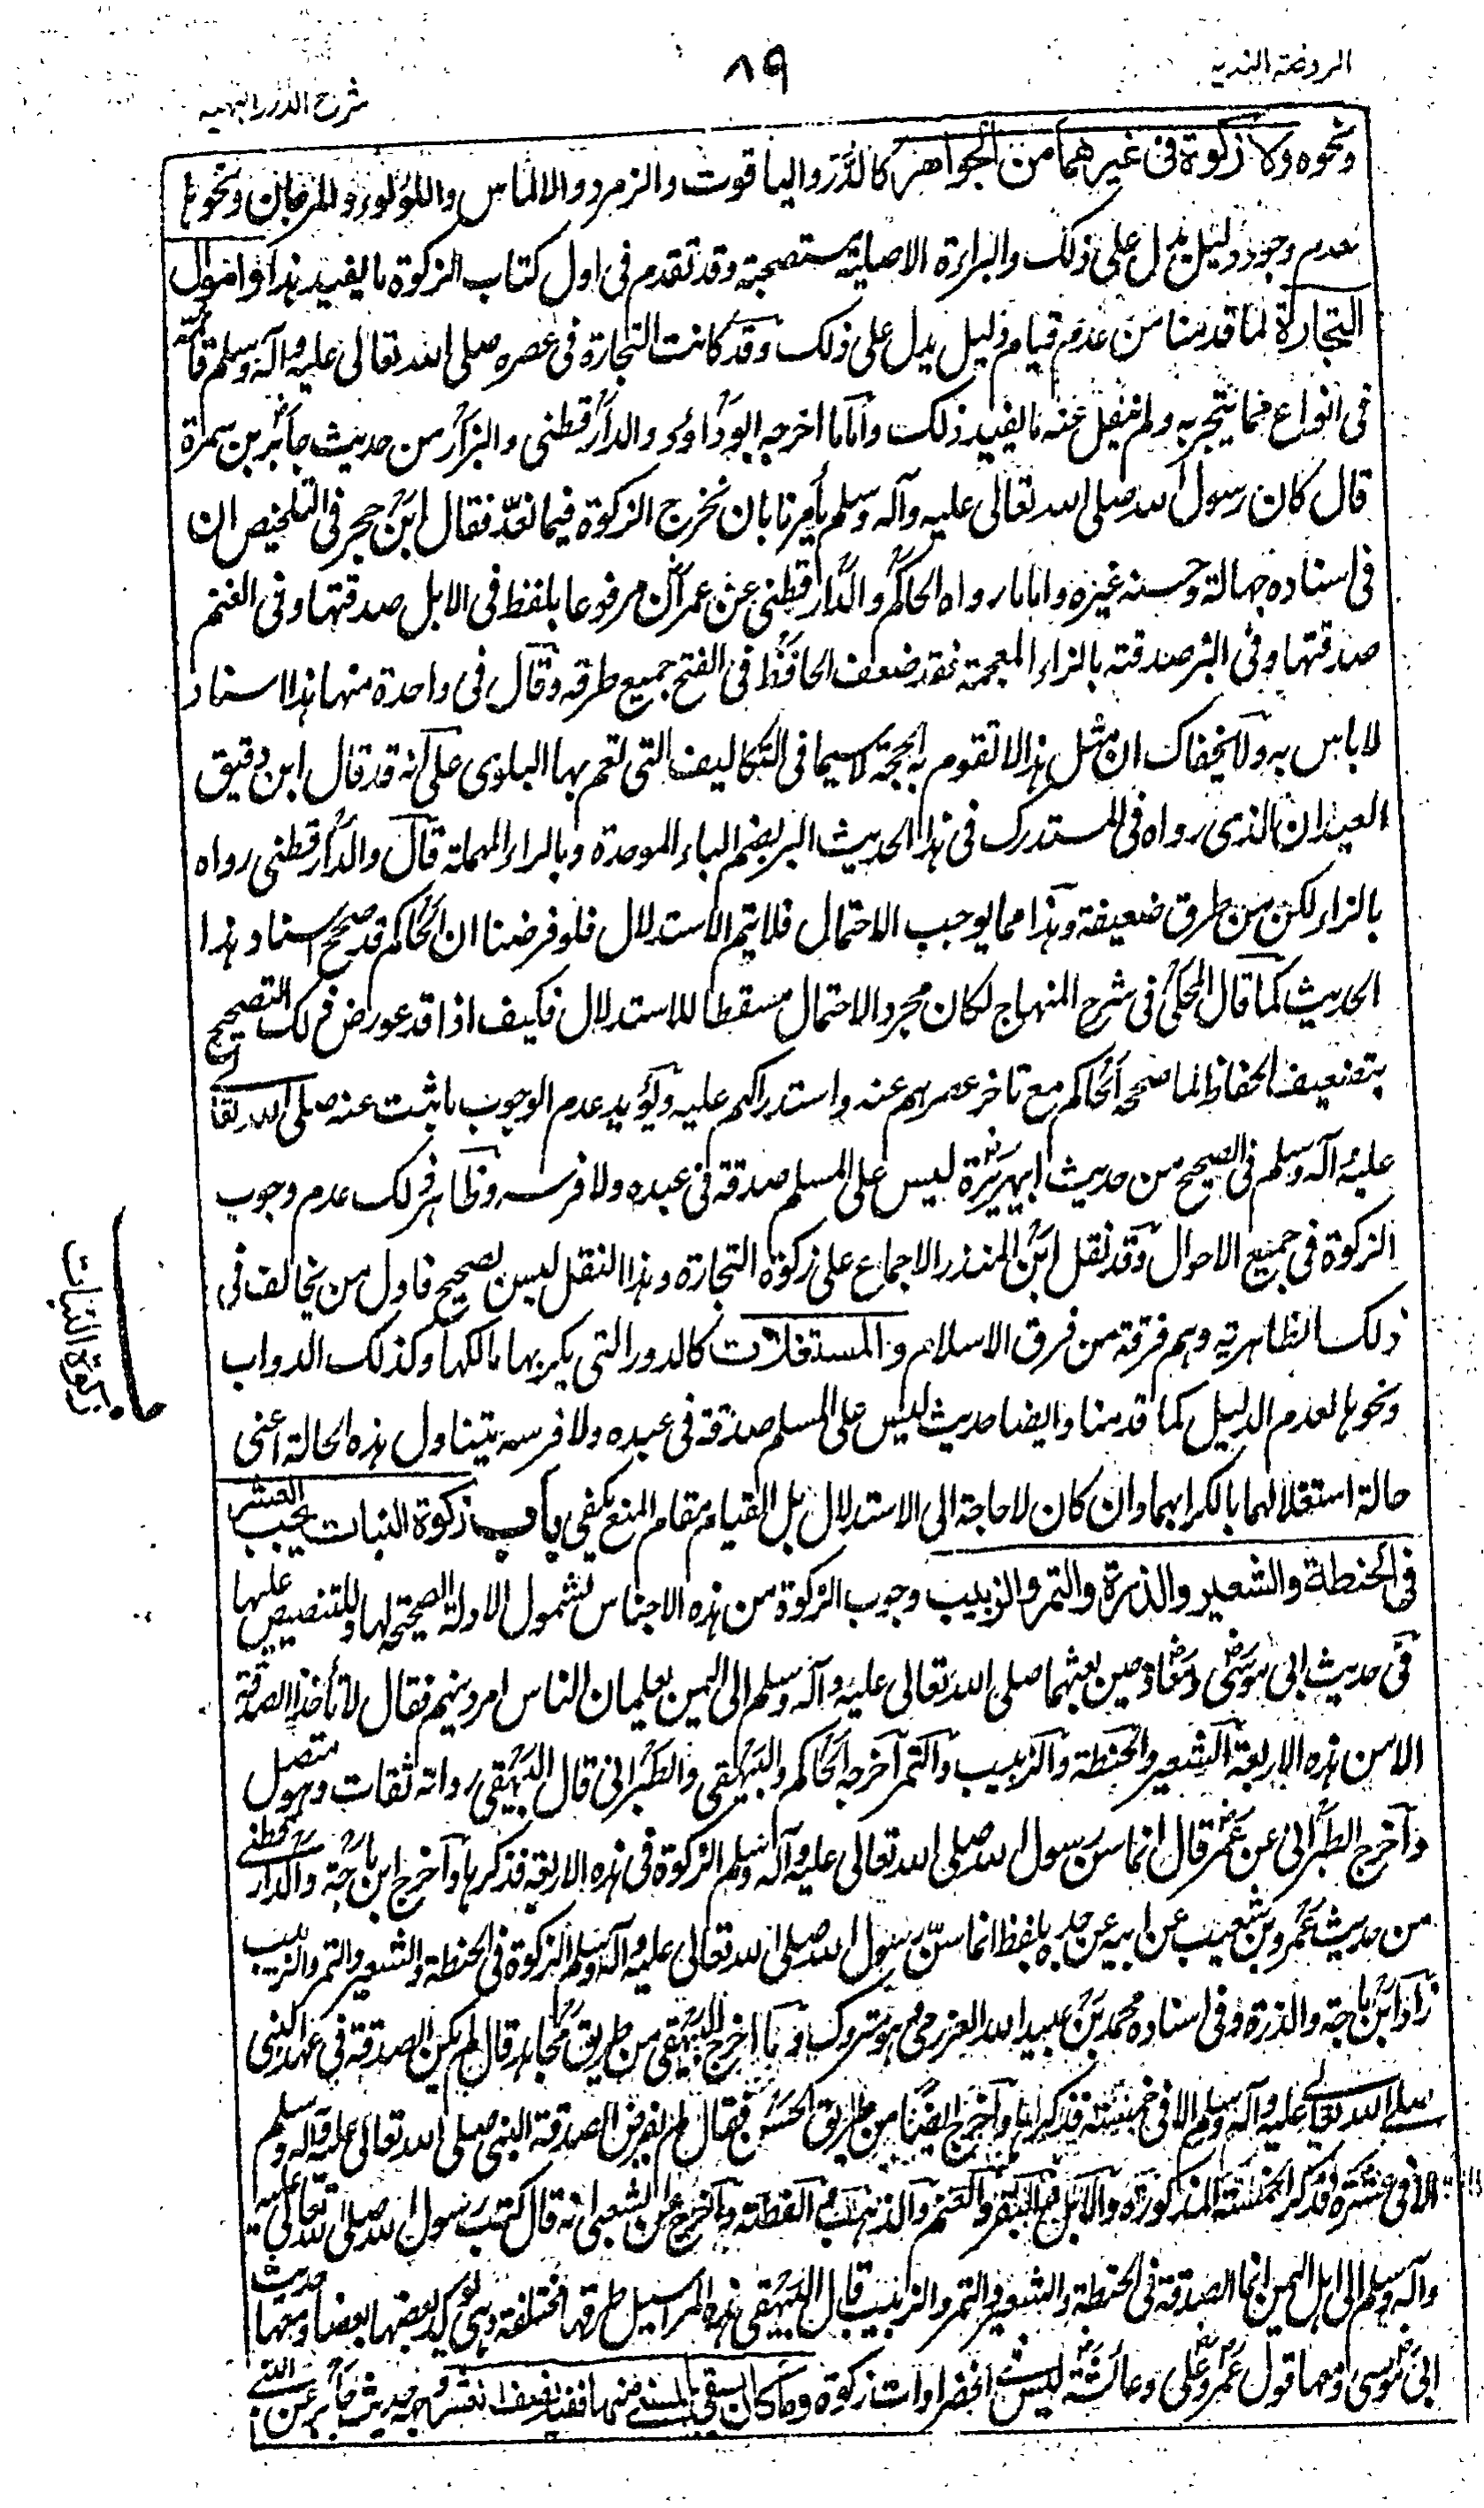 الروضة الندية
٨٩
شرح الدرر البهية
ونحوه ولا زكوة فى غيرهما من الجواهر كالدرر والياقوت والزمرد والالماس واللؤلؤ والمرجان ونحوها
لعدم وجود دليل يدل على ذلك والبراءة الاصلية مستصحبة وقد تقدم فى اول كتاب الزكوة ما يفيد هذا واموال
التجارة لما قدمنا من عدم قيام دليل يدل على ذلك وقد كانت التجارة فى عصره صلى الله تعالى عليه وآله وسلم قائمة
فى انواع مما يتجر به ولم ينقل عنه ما يفيد ذلك واما ما اخرجه ابو داود والدارقطنى والبزار من حديث جابر بن سمرة
قال كان رسول الله صلى الله تعالى عليه وآله وسلم يأمرنا بان نخرج الزكوة فيما نعدّ فقال ابن حجر فى التلخيص ان
فى اسناده جهالة وحسنه غيره واما ما رواه الحاكم والدارقطنى عن عمران مرفوعا بلفظ فى الابل صدقتها وفى الغنم
صدقتها وفى البز صدقته بالزاء المعجمة فقد ضعف الحافظ فى الفتح جميع طرقه وقال فى واحدة منها هذا اسناد
لا باس به ولا يخفاك ان مثل هذا لا تقوم به الحجة لا سيما فى التكاليف التى تعم بها البلوى على انه قد قال ابن دقيق
العيد ان الذى رواه فى المستدرك فى هذا الحديث البر بضم الباء الموحدة وبالراء المهملة قال والدارقطنى رواه
بالزاء لكن من طرق ضعيفة وهذا مما يوجب الاحتمال فلا يتم الاستدلال فلو فرضنا ان الحاكم قد صحح اسناد هذا
الحديث كما قال المحلى فى شرح المنهاج لكان مجرد الاحتمال مسقطا للاستدلال فكيف اذا قد عورض ذلك التصحيح
بتضعيف الحفاظ لما صححه الحاكم مع تاخر عصرهم عنه واستدراكهم عليه ويؤيد عدم الوجوب ما ثبت عنه صلى الله تعالى
عليه وآله وسلم فى الصحيح من حديث ابى هريرة ليس على المسلم صدقة فى عبده ولا فرسه وظاهر ذلك عدم وجوب
الزكوة فى جميع الاحوال وقد نقل ابن المنذر الاجماع على زكوة التجارة وهذا النقل ليس بصحيح فاول من يخالف فى
ذلك الظاهرية وهم فرقة من فرق الاسلام والمستغلات كالدور التى يكريها مالكها وكذلك الدواب
ونحوها لعدم الدليل كما قدمنا وايضا حديث ليس على المسلم صدقة فى عبده ولا فرسه يتناول هذه الحالة اعنى
حالة استغلالهما بالكراء بهما وان كان لا حاجة الى الاستدلال بل القيام مقام المنع يكفى باب زكوة النبات يجب العشر
فى الحنطة والشعير والذرة والتمر والزبيب وجوب الزكوة من هذه الاجناس لشمول الادلة الصحيحة لها وللتنصيص عليها
فى حديث ابى موسى ومعاذ حين بعثهما صلى الله تعالى عليه وآله وسلم الى اليمن يعلمان الناس امر دينهم فقال لا تأخذا الصدقة
الا من هذه الاربعة الشعير والحنطة والزبيب والتمر اخرجه الحاكم والبيهقى والطبرانى قال البيهقى رواته ثقات وهو متصل
واخرج الطبرانى عن عمر قال انما سن رسول الله صلى الله تعالى عليه وآله وسلم الزكوة فى هذه الاربعة فذكرها واخرج ابن ماجة والدارقطنى
من حديث عمرو بن شعيب عن ابيه عن جده بلفظ انما سنّ رسول الله صلى الله تعالى عليه وآله وسلم الزكوة فى الحنطة والشعير والتمر والزبيب
زاد ابن ماجة والذرة وفى اسناده محمد بن عبيد الله العزرمى وهو متروك واخرج البيهقى من طريق مجاهد قال لم يكن الصدقة فى عهد النبى
صلى الله تعالى عليه وآله وسلم الا فى خمسة فذكرها واخرج ايضا من طريق الحسن فقال لم يفرض الصدقة النبى صلى الله تعالى عليه وآله وسلم
الا فى عشرة فذكر الخمسة المذكورة والابل والبقر والغنم والذهب والفضة واخرج عن الشعبى انه قال كتب رسول الله صلى الله تعالى عليه
وآله وسلم الى اهل اليمن انما الصدقة فى الحنطة والشعير والتمر والزبيب قال البيهقى هذه المراسيل طرقها مختلفة وهى يؤكد بعضها بعضا ومعها حديث
ابى موسى ومعها قول عمر وعلى وعائشة ليس فى الخضراوات زكوة وما كان يسقى بالمسنى منها ففيه نصف العشر وجهه حديث جابر عن النبى
زكوة النبات